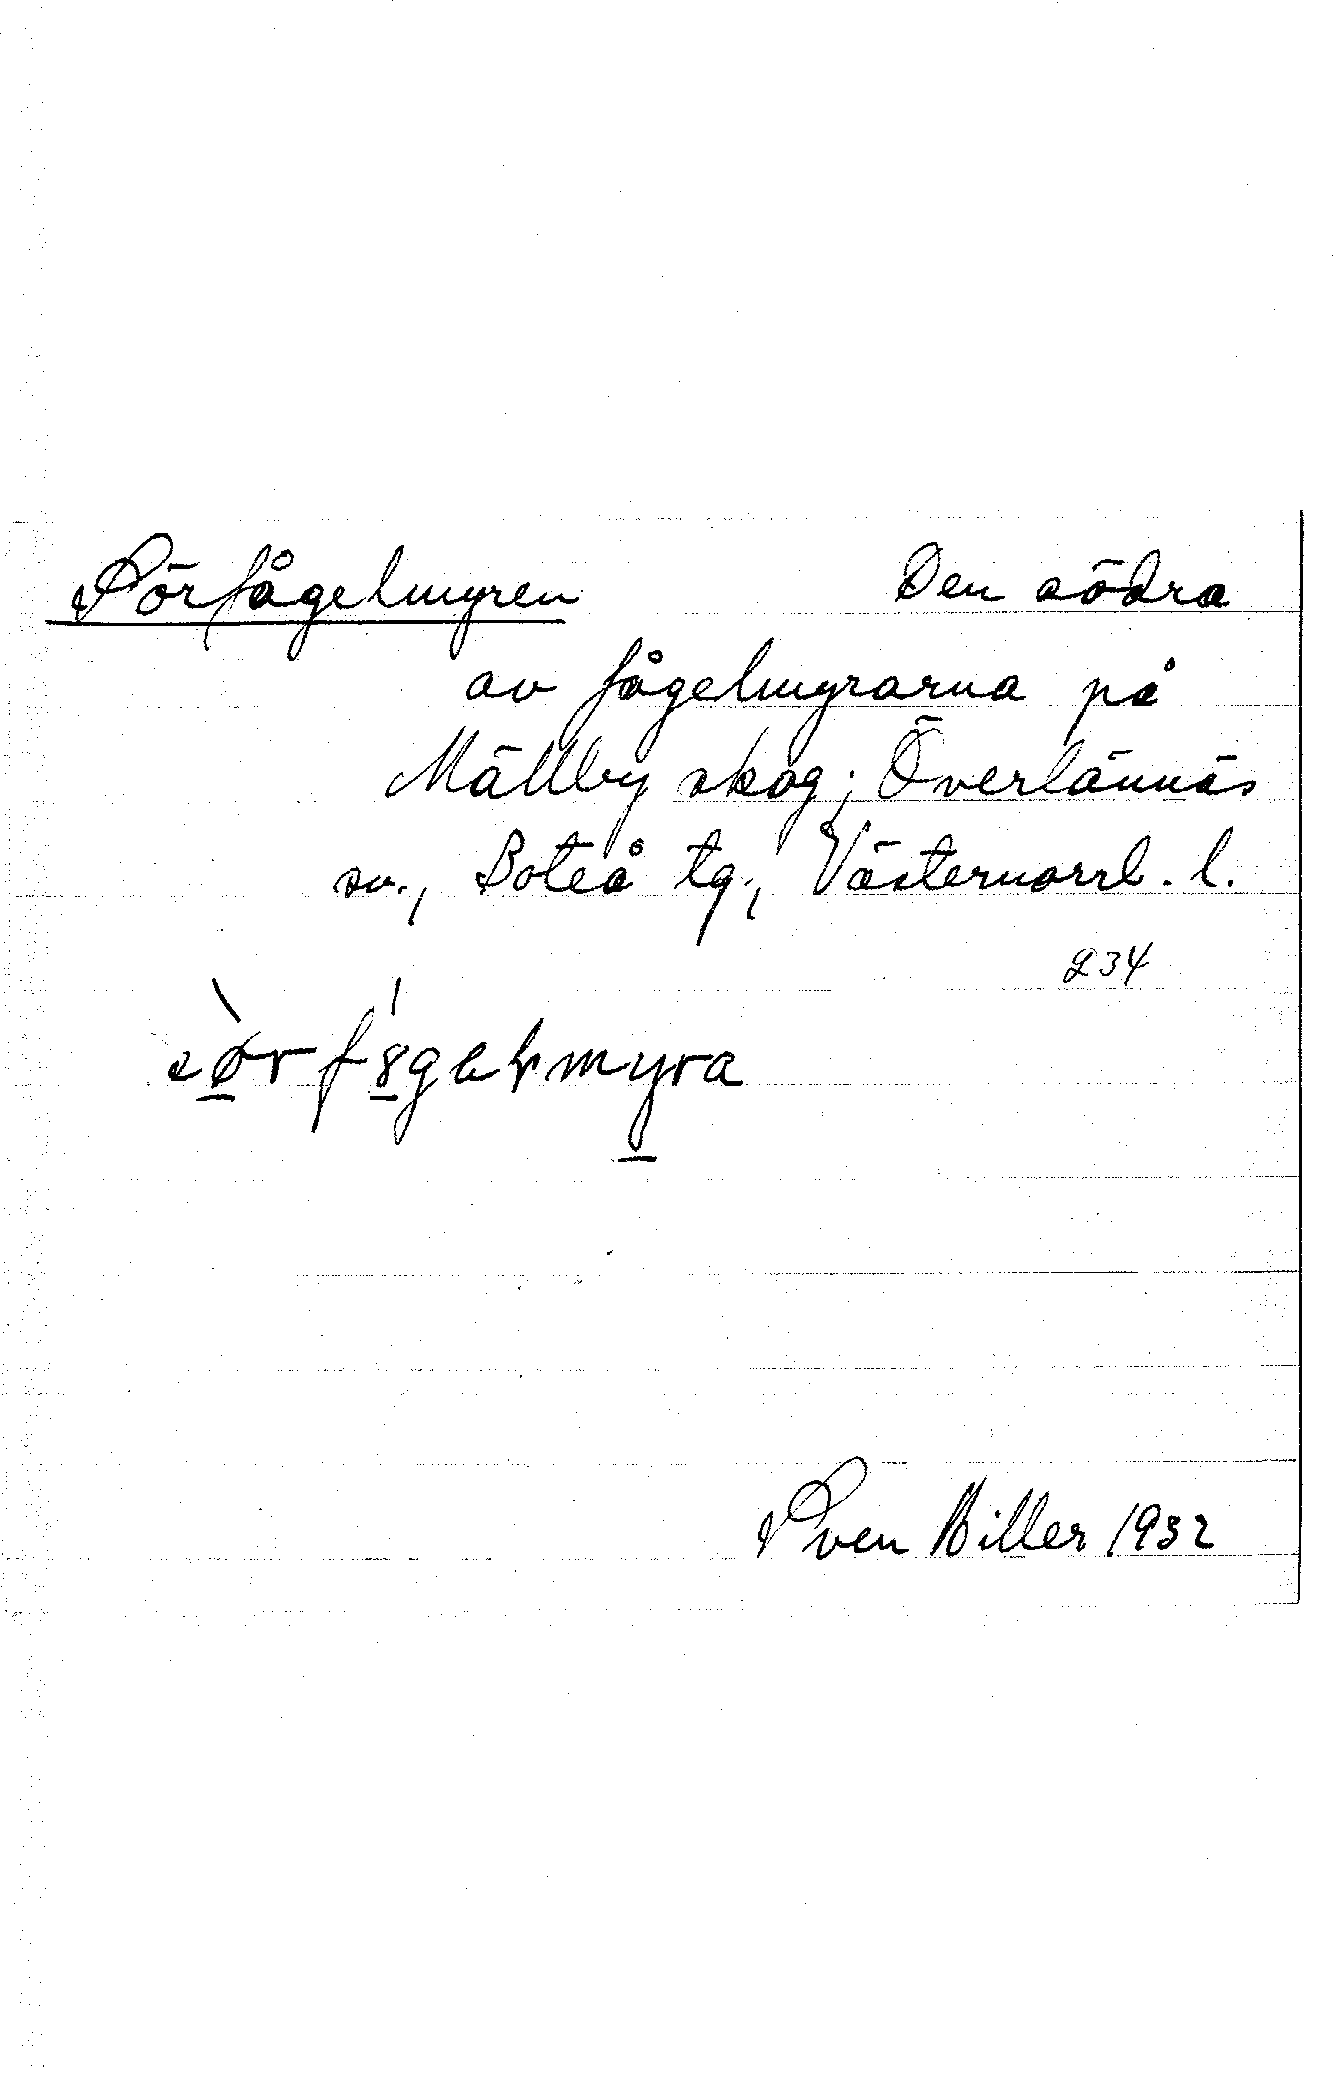 Sörfågelmyren Den södra
av fågelmyrarna på
Mällby skog; Överlännäs
sn., Boteå tg., Västernorrl. l.
234
Sven Hiller 1932